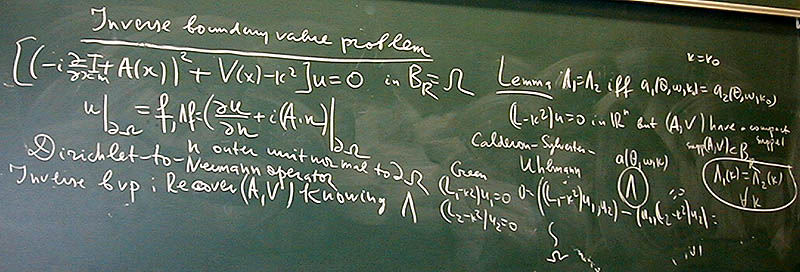 Inverse boundary value problem
[(-i ∂/∂x I + A(x))² + V(x) - κ²]u = 0 in B_R = Ω
u|∂Ω = f, Λf = (∂u/∂n + i(A·n))|∂Ω
n outer unit normal to ∂Ω
Dirichlet-to-Neumann operator
Inverse bvp : Recover (A,V) knowing Λ
κ = κ₀
Lemma Λ₁ = Λ₂ iff a₁(θ,ω,κ) = a₂(θ,ω,κ₀)
(L-κ²)u = 0 in ℝⁿ but (A,V) have compact support
supp(A,V) ⊂ B_R
Calderon-Sylvester-Uhlmann
a(θ,ω,κ)
Λ
Λ₁(κ) = Λ₂(κ)
∀ κ
Green
(L₁-κ²)u₁ = 0
(L₂-κ²)u₂ = 0
0 = ((L₁-κ²)u₁,u₂) - (u₁,(L₂-κ²)u₂) =
∫ Ω